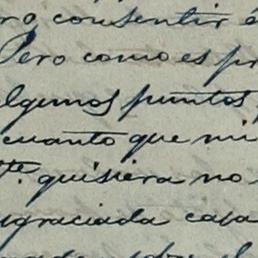 ro consentir é
Pero como es pr
algunos puntos,
cuanto que mi
tte. quisiera no
sgraciada casa